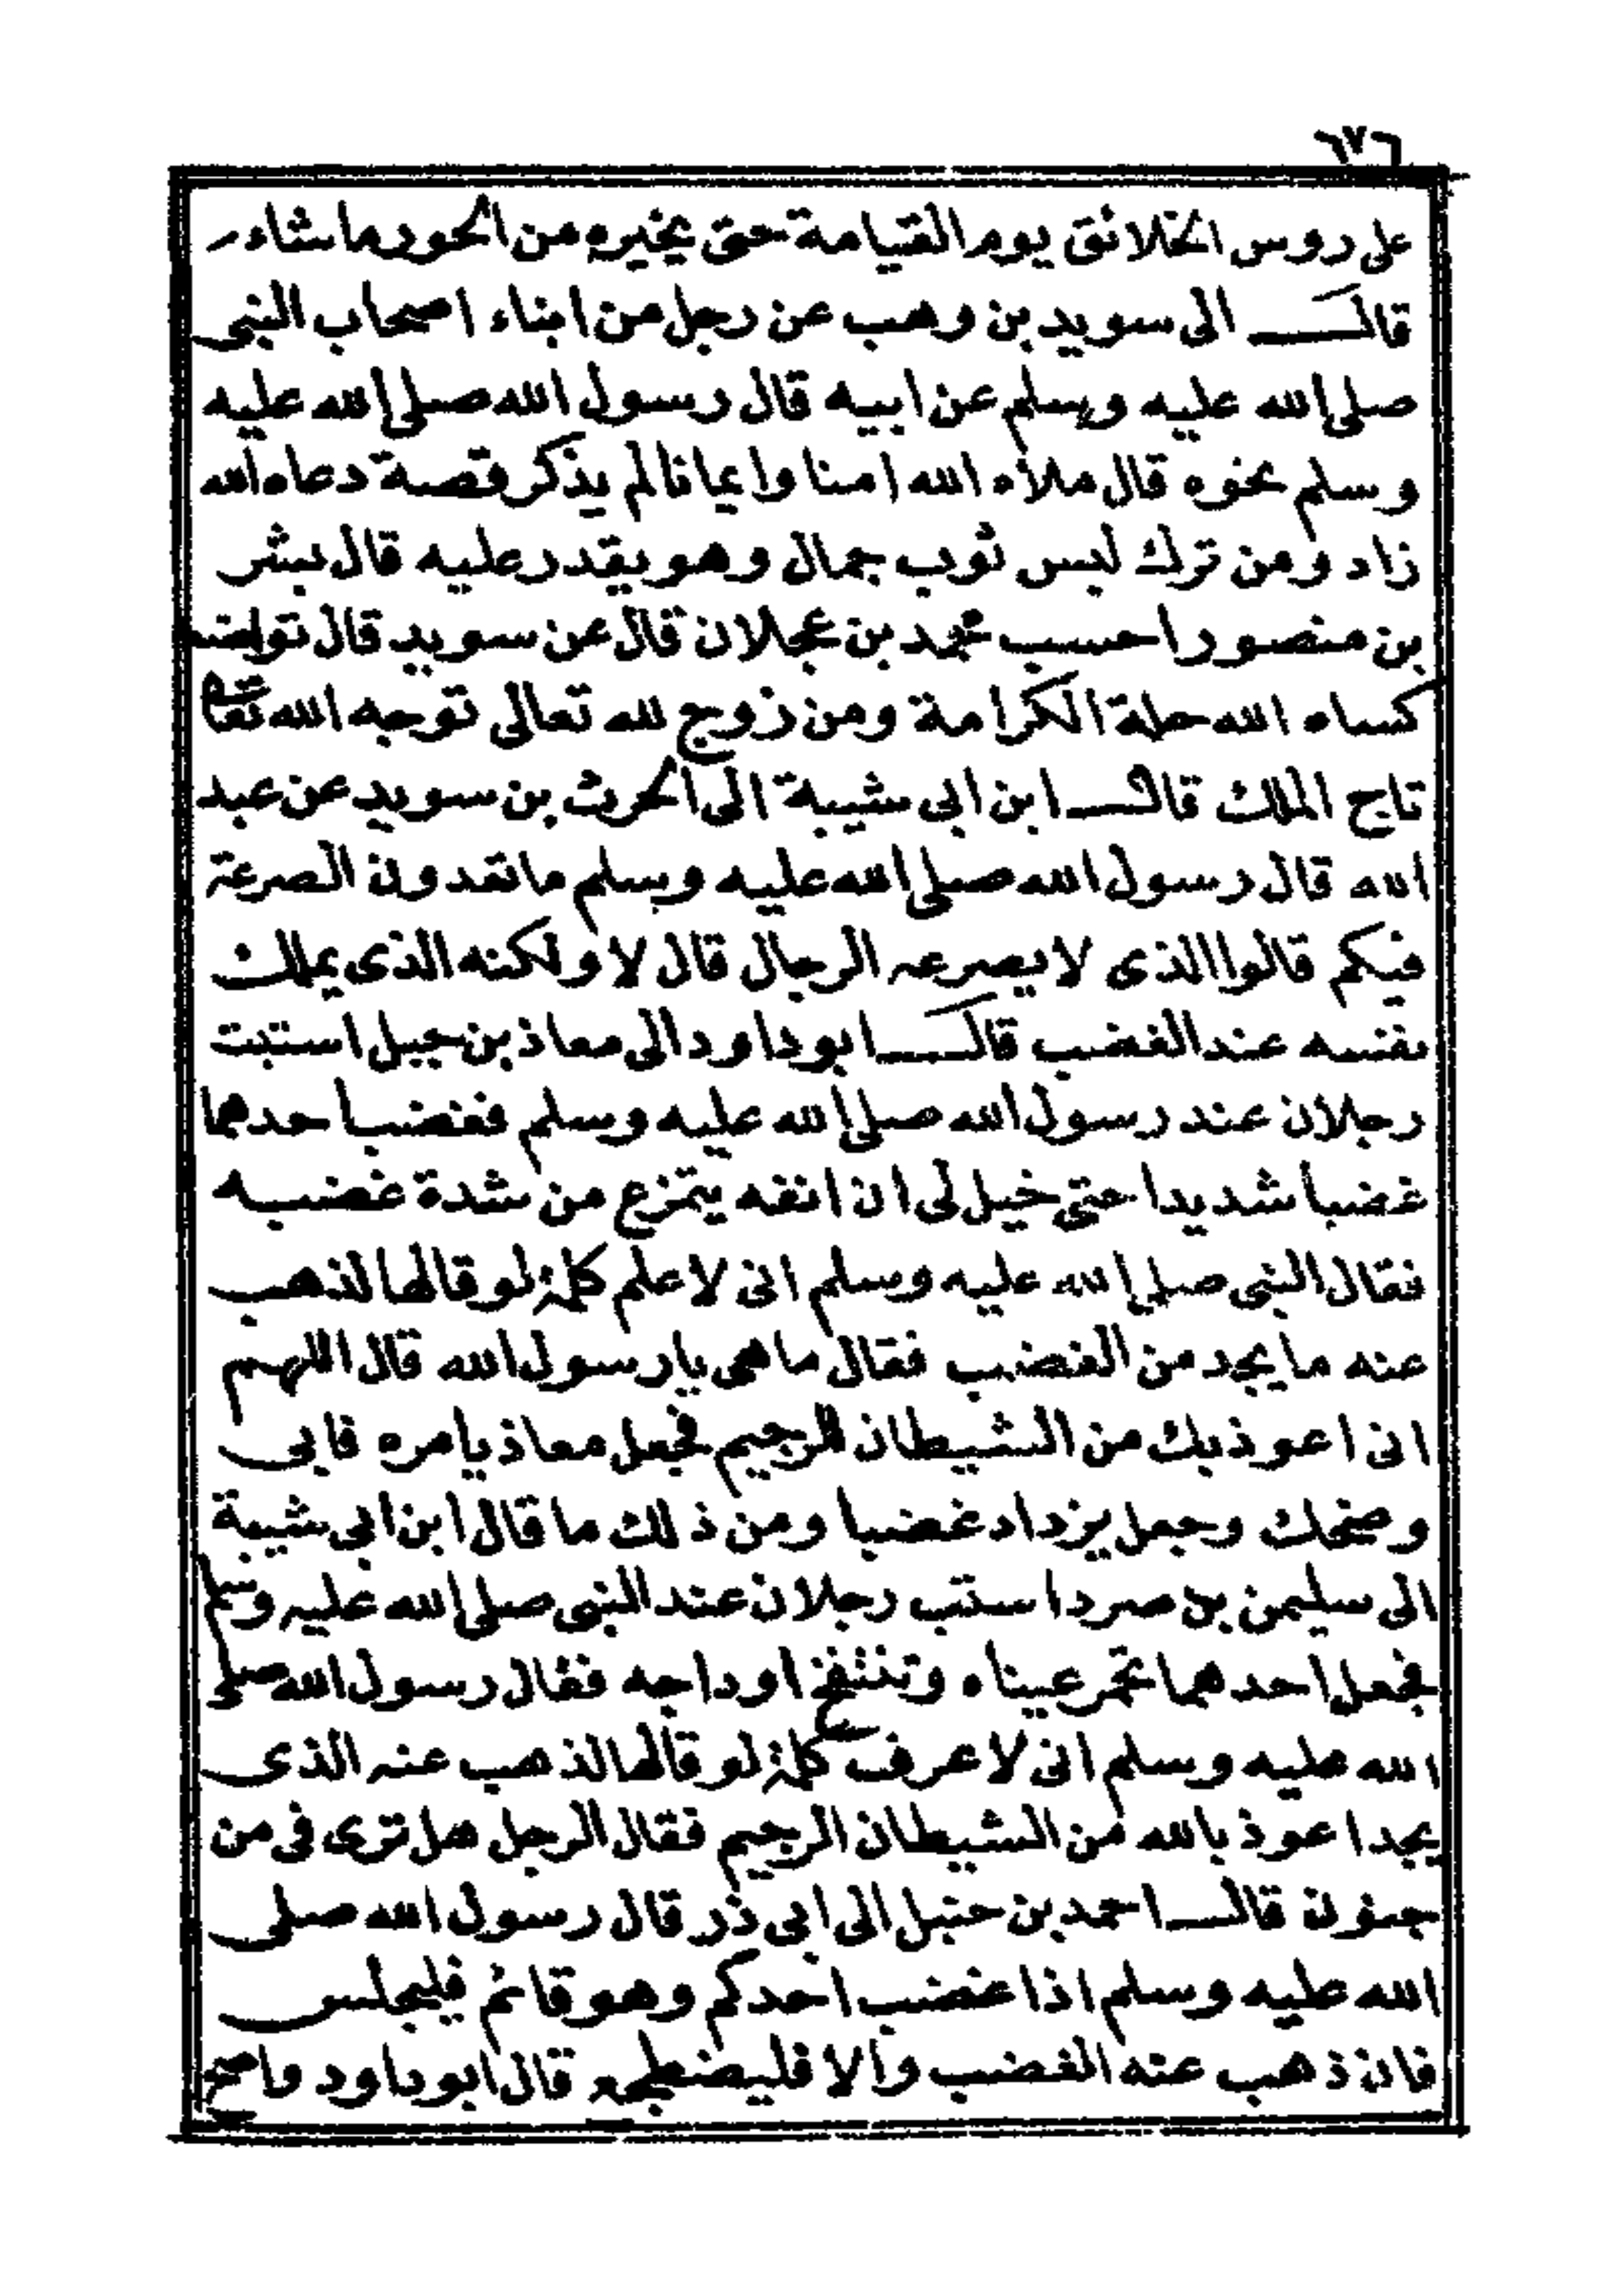 ٦٧٦
على روس الخلائق يوم القيامة حتى يخيره من الحور ما شاء
قال الى سويد بن وهب عن رجل من ابناء اصحاب النبى
صلى الله عليه وسلم عن ابيه قال رسول الله صلى الله عليه
وسلم نحوه قال ملأه الله امنا وايمانا لم يذكر قصة دعاه الله
زاد ومن ترك لبس ثوب جمال وهو يقدر عليه قال بشر
بن منصور احسب محمد بن عجلان قال عن سويد قال تواضعا
كساه الله حلة الكرامة ومن زوج لله تعالى توجه الله تعالى
تاج الملك قال ابن ابى شيبة الى الحرث بن سويد عن عبد
الله قال رسول الله صلى الله عليه وسلم ما تعدون الصرعة
فيكم قالوا الذى لا يصرعه الرجال قال لا ولكنه الذى يملك
نفسه عند الغضب قال ابو داود الى معاذ بن جبل استبت
رجلان عند رسول الله صلى الله عليه وسلم فغضب احدهما
غضبا شديدا حتى خيل لى ان انفه يتمزع من شدة غضبه
فقال النبى صلى الله عليه وسلم انى لاعلم كلمة لو قالها لذهب
عنه ما يجد من الغضب فقال ما هى يا رسول الله قال اللهم
انى اعوذ بك من الشيطان الرجيم فجعل معاذ يامره فابى
وضحك وجعل يزداد غضبا ومن ذلك ما قال ابن ابى شيبة
الى سليمن بن صرد استب رجلان عند النبى صلى الله عليه وسلم
فجعل احدهما تحمر عيناه وتنتفخ اوداجه فقال رسول الله صلى
الله عليه وسلم انى لاعرف كلمة لو قالها لذهب عنه الذى
يجد اعوذ بالله من الشيطان الرجيم فقال الرجل هل ترى فى من
جنون قال احمد بن حنبل الى ابى ذر قال رسول الله صلى
الله عليه وسلم اذا غضب احدكم وهو قائم فليجلس
فان ذهب عنه الغضب والا فليضطجع قال ابو داود واصح